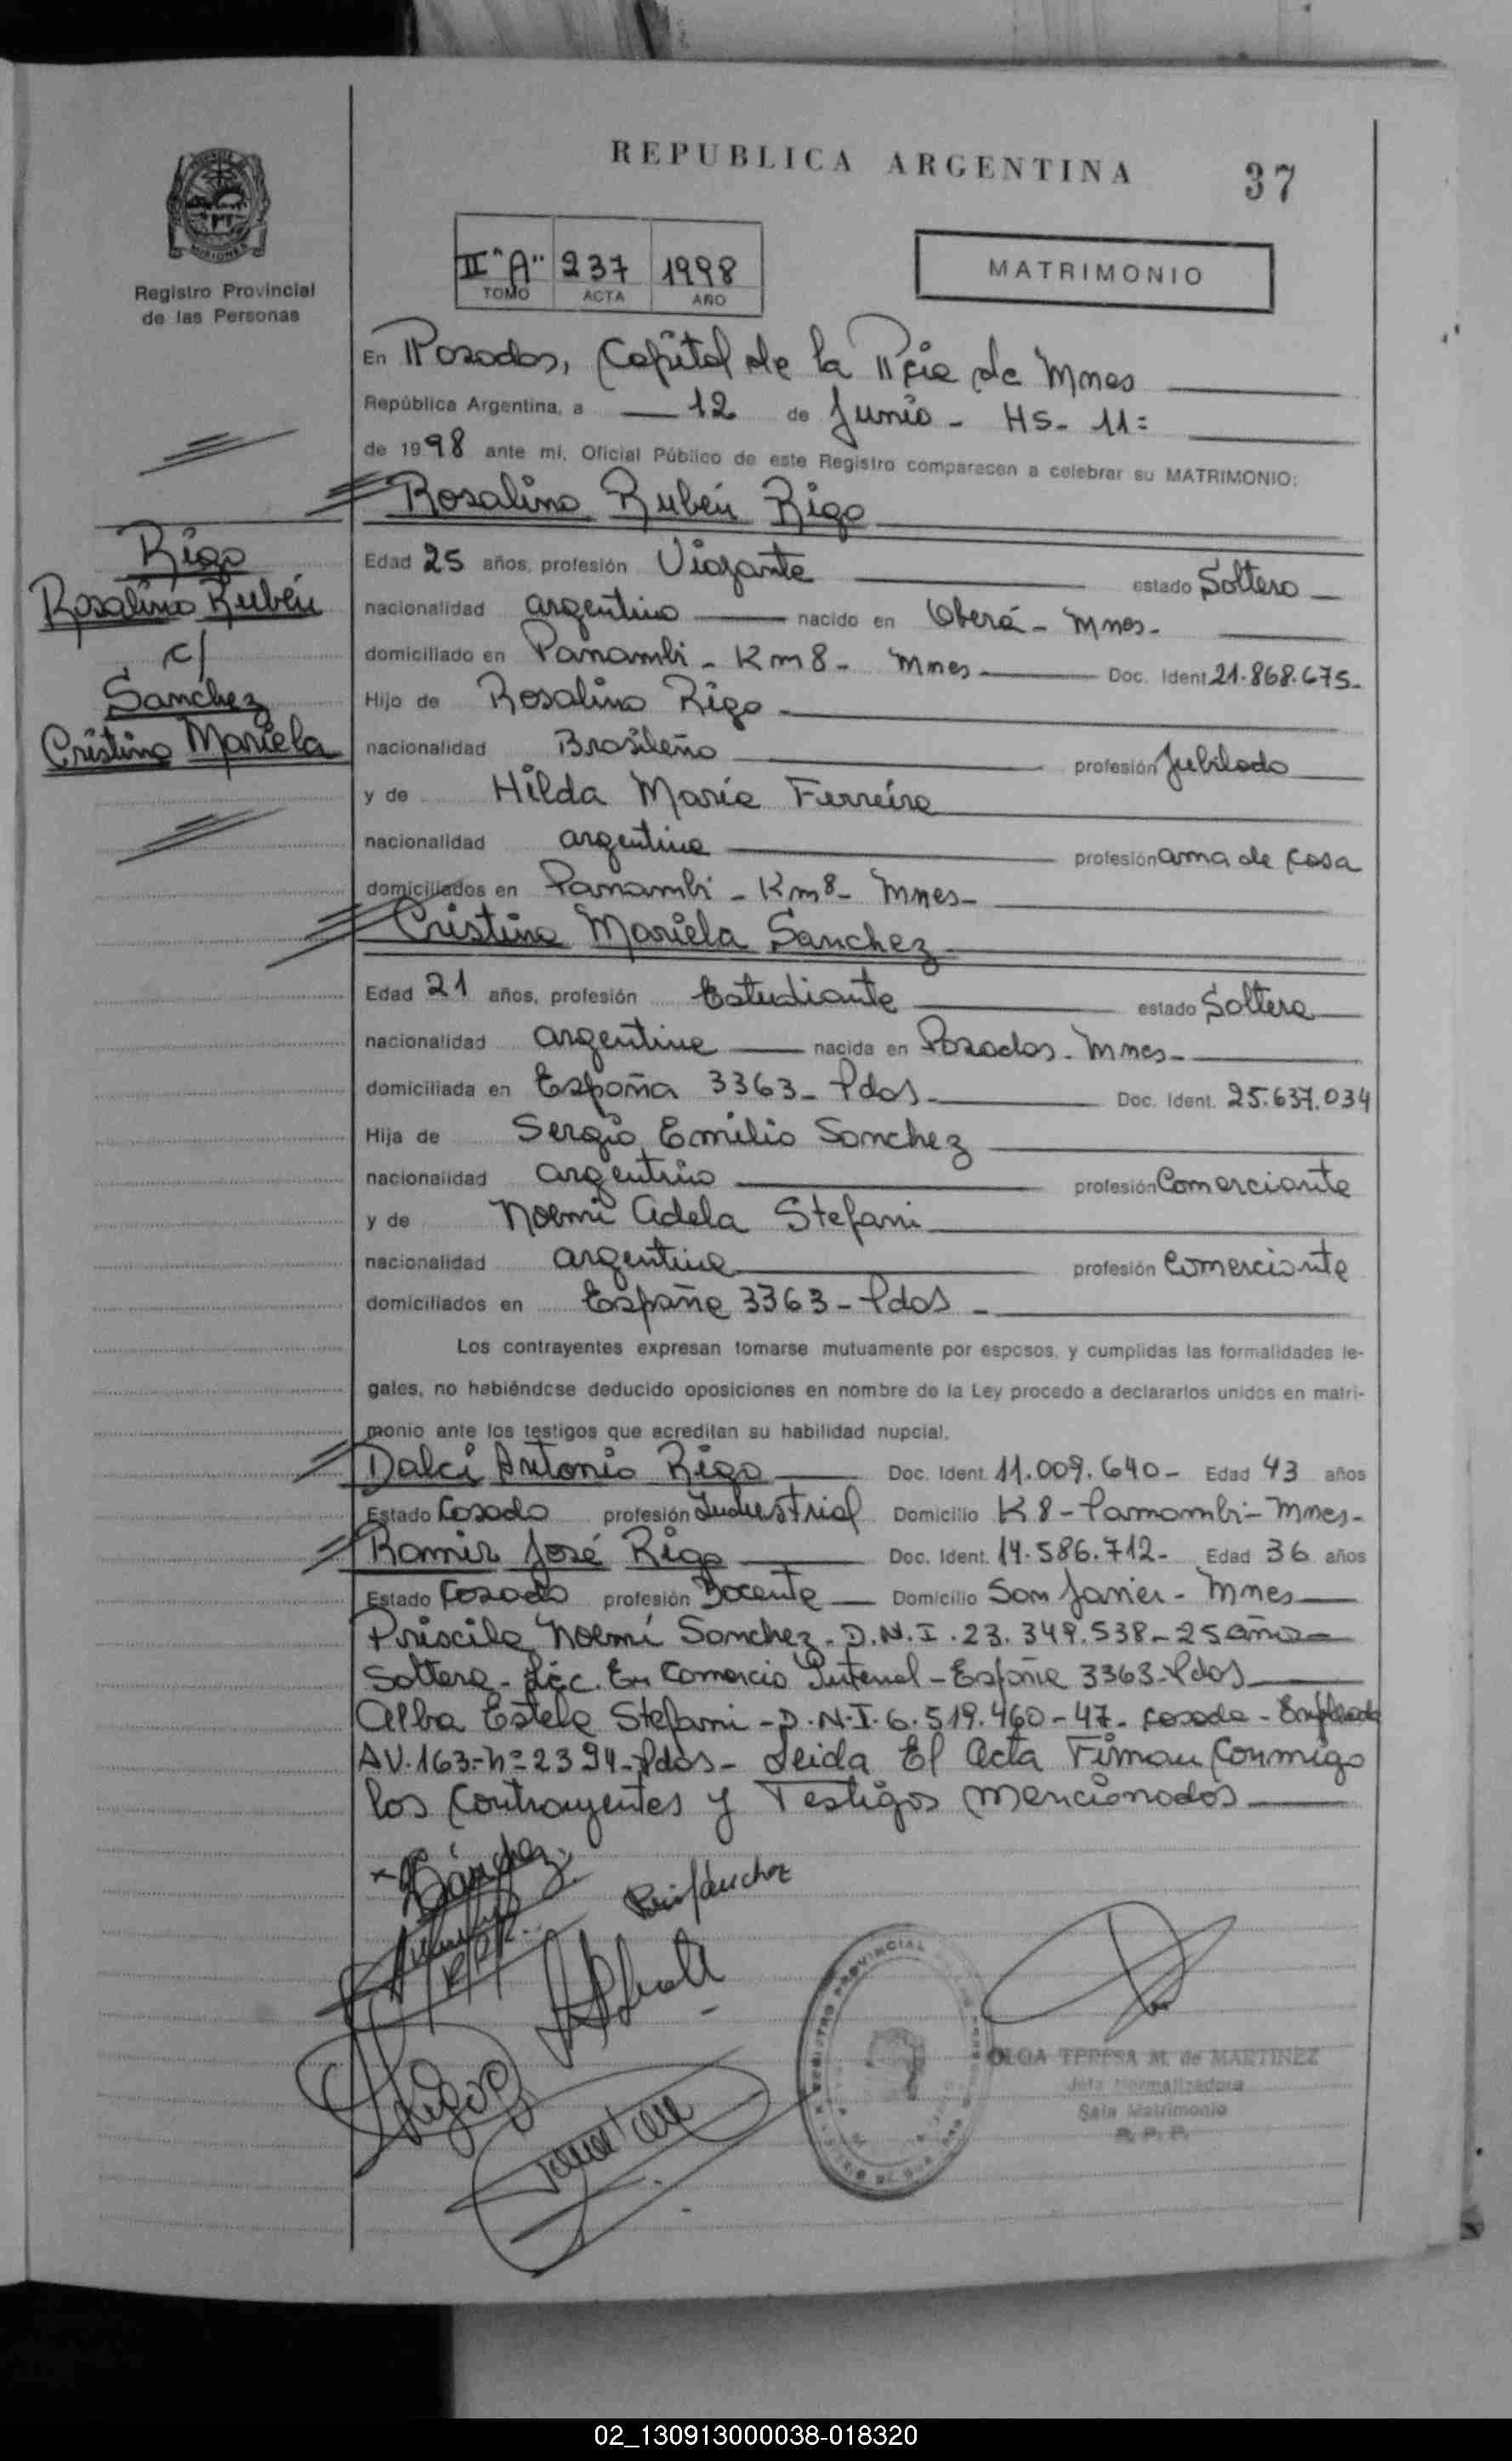 REPUBLICA ARGENTINA
37
II "A" 237 1998
TOMO ACTA AÑO
MATRIMONIO
Registro Provincial
de las Personas
En Posadas, Capital de la Pcia de Mnes
República Argentina, a 12 de Junio - HS - 11:
de 1998 ante mí, Oficial Público de este Registro comparecen a celebrar su MATRIMONIO:
Rosalino Rubén Rigo
Rigo
Rosalino Rubén
c/
Sanchez
Cristina Mariela
Edad 25 años, profesión Viajante estado Soltero
nacionalidad argentino nacido en Oberá - Mnes -
domiciliado en Panambi - Km 8 - Mnes Doc. Ident 21.868.675-
Hijo de Rosalino Rigo
nacionalidad Brasileño profesión Jubilado
y de Hilda María Ferreira
nacionalidad argentina profesión ama de casa
domiciliados en Panambi - Km 8 - Mnes -
Cristina Mariela Sanchez
Edad 21 años, profesión Estudiante estado Soltera
nacionalidad argentina nacida en Posadas - Mnes -
domiciliada en España 3363 - Pdas - Doc. Ident. 25.637.034
Hija de Sergio Emilio Sanchez
nacionalidad argentino profesión Comerciante
y de Noemi Adela Stefani
nacionalidad argentina profesión Comerciante
domiciliados en España 3363 - Pdas -
Los contrayentes expresan tomarse mutuamente por esposos, y cumplidas las formalidades le-
gales, no habiéndose deducido oposiciones en nombre de la Ley procedo a declararlos unidos en matri-
monio ante los testigos que acreditan su habilidad nupcial.
Dalci Antonio Rigo Doc. Ident. 11.009.640 - Edad 43 años
Estado Casado profesión Industrial Domicilio K 8 - Panambi - Mnes -
Ramir José Rigo Doc. Ident. 14.586.712 - Edad 36 años
Estado Casado profesión Docente Domicilio San Javier - Mnes
Priscila Noemí Sanchez - D.N.I. 23.349.538 - 25 años
Soltera - Lic. En Comercio - España 3363 - Pdas
Alba Estela Stefani - D.N.I. 6.519.460 - 47 - casada - Empleada
AV. 163 - nº 2394 - Pdas - Leida El Acta Firman Conmigo
los Contrayentes y Testigos mencionados
Sánchez
OLGA TERESA M. de MARTINEZ
Jefa Normalizadora
Sala Matrimonio
R. P. P.
02_130913000038-018320